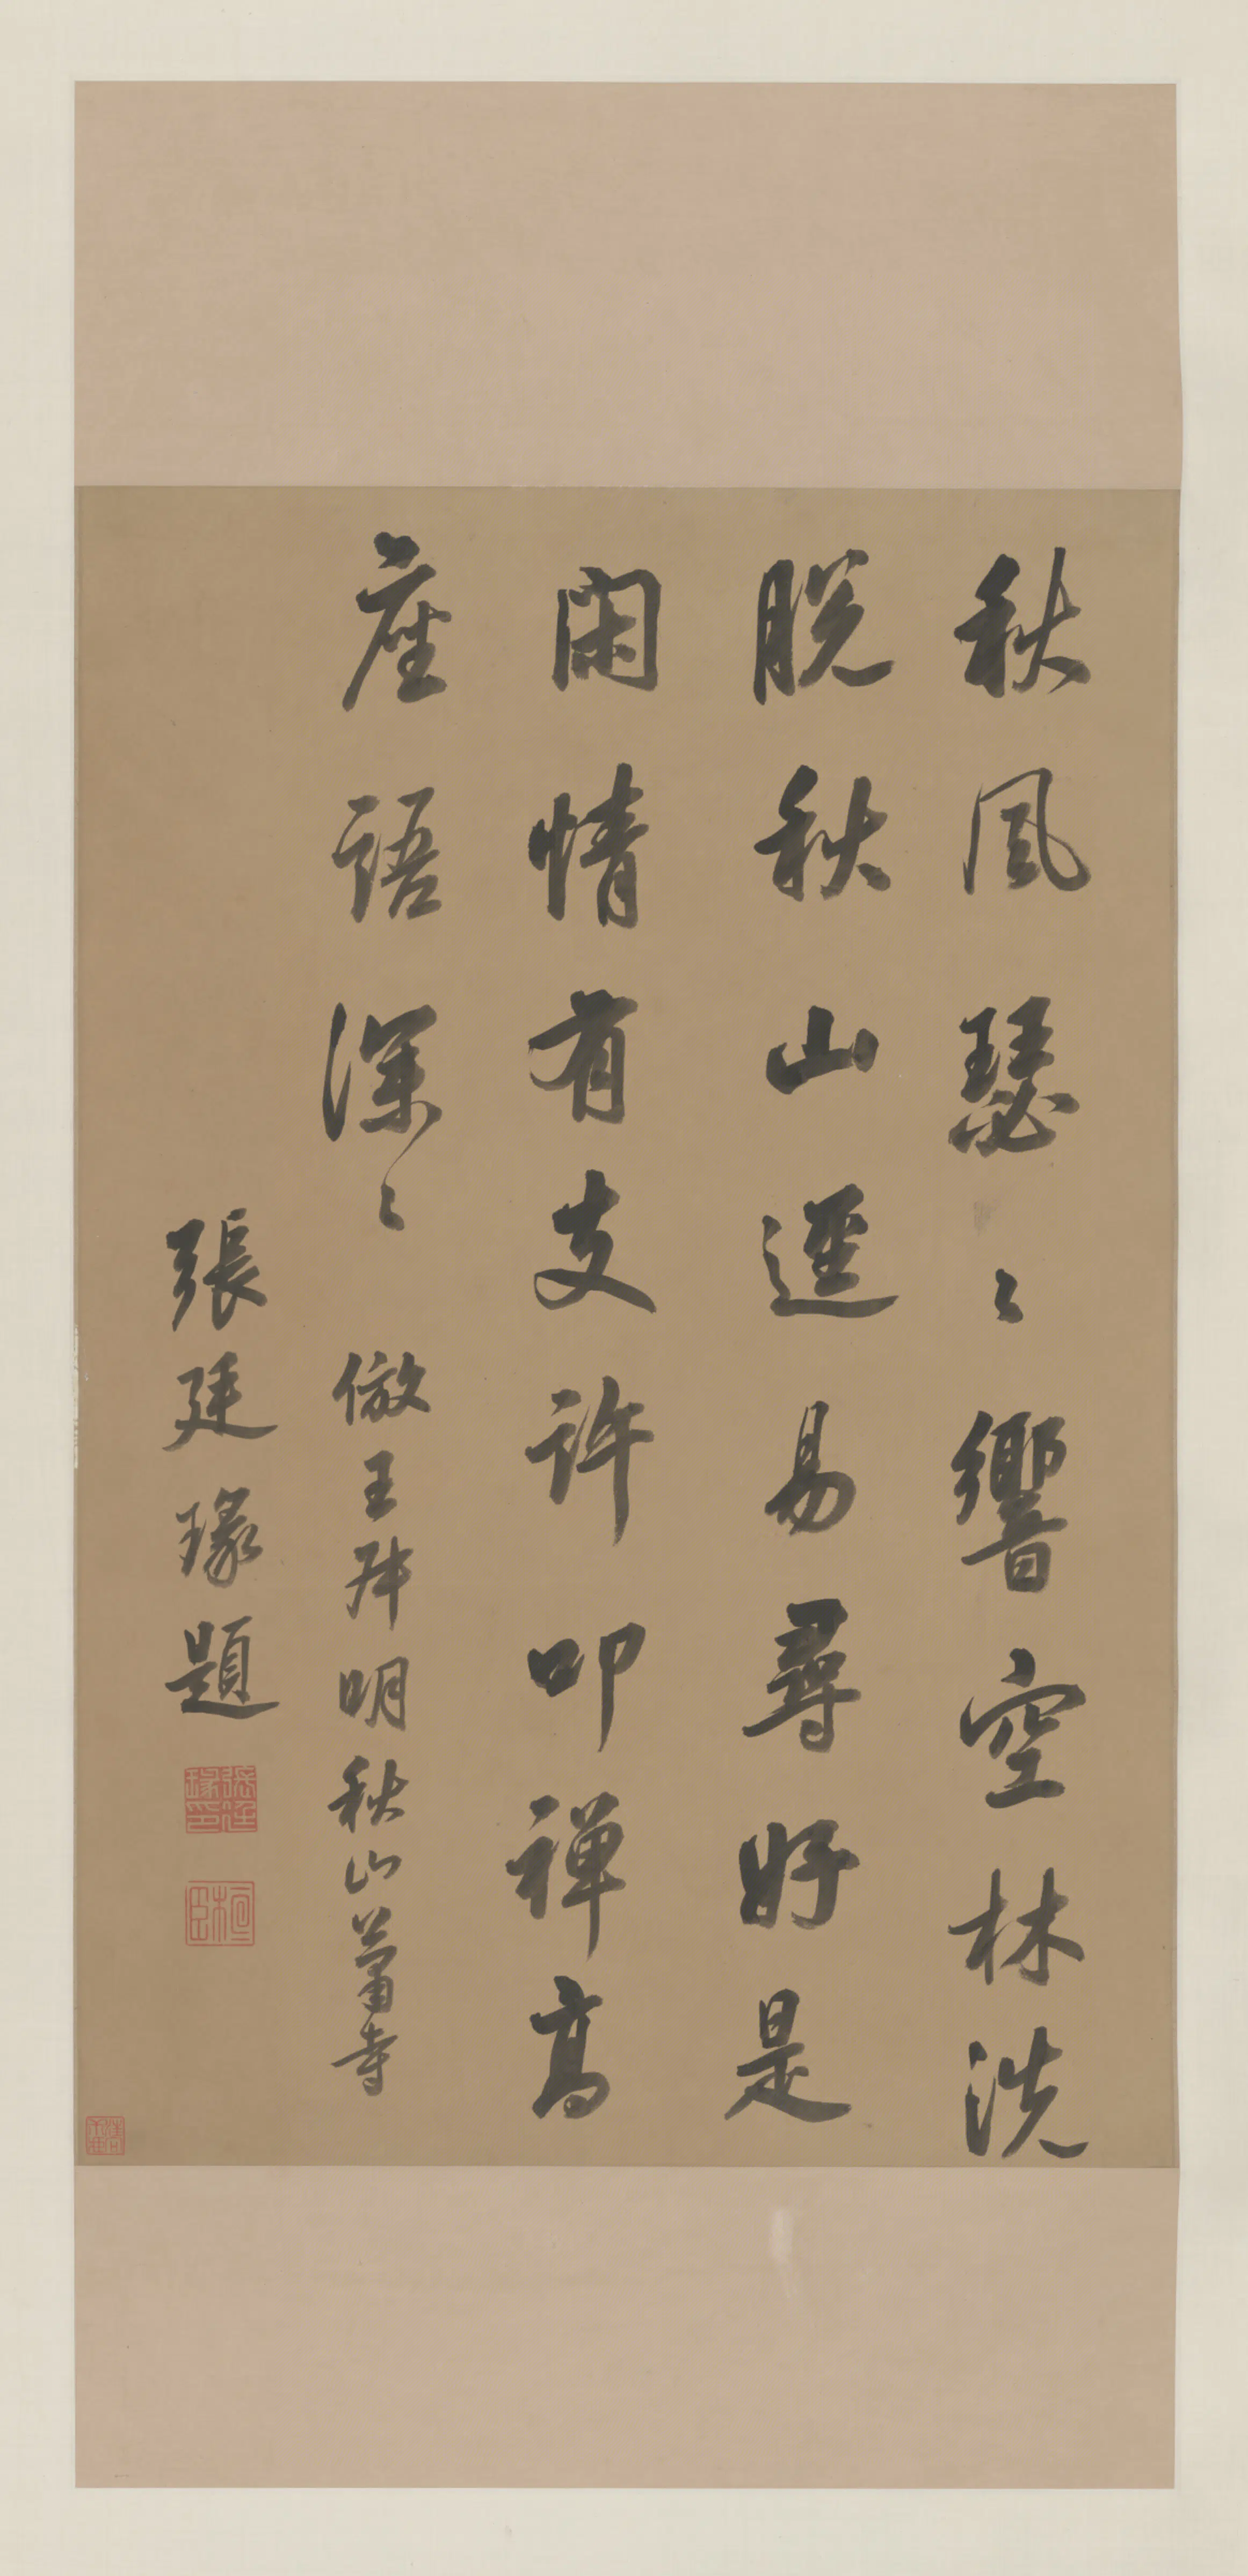 秋風瑟〻響空林洗
脫秋山逕易尋好是
閑情有支許叩禪高
座語深〻 倣王叔明秋山蕭寺
張廷瑑題
張廷瑑印
桓臣